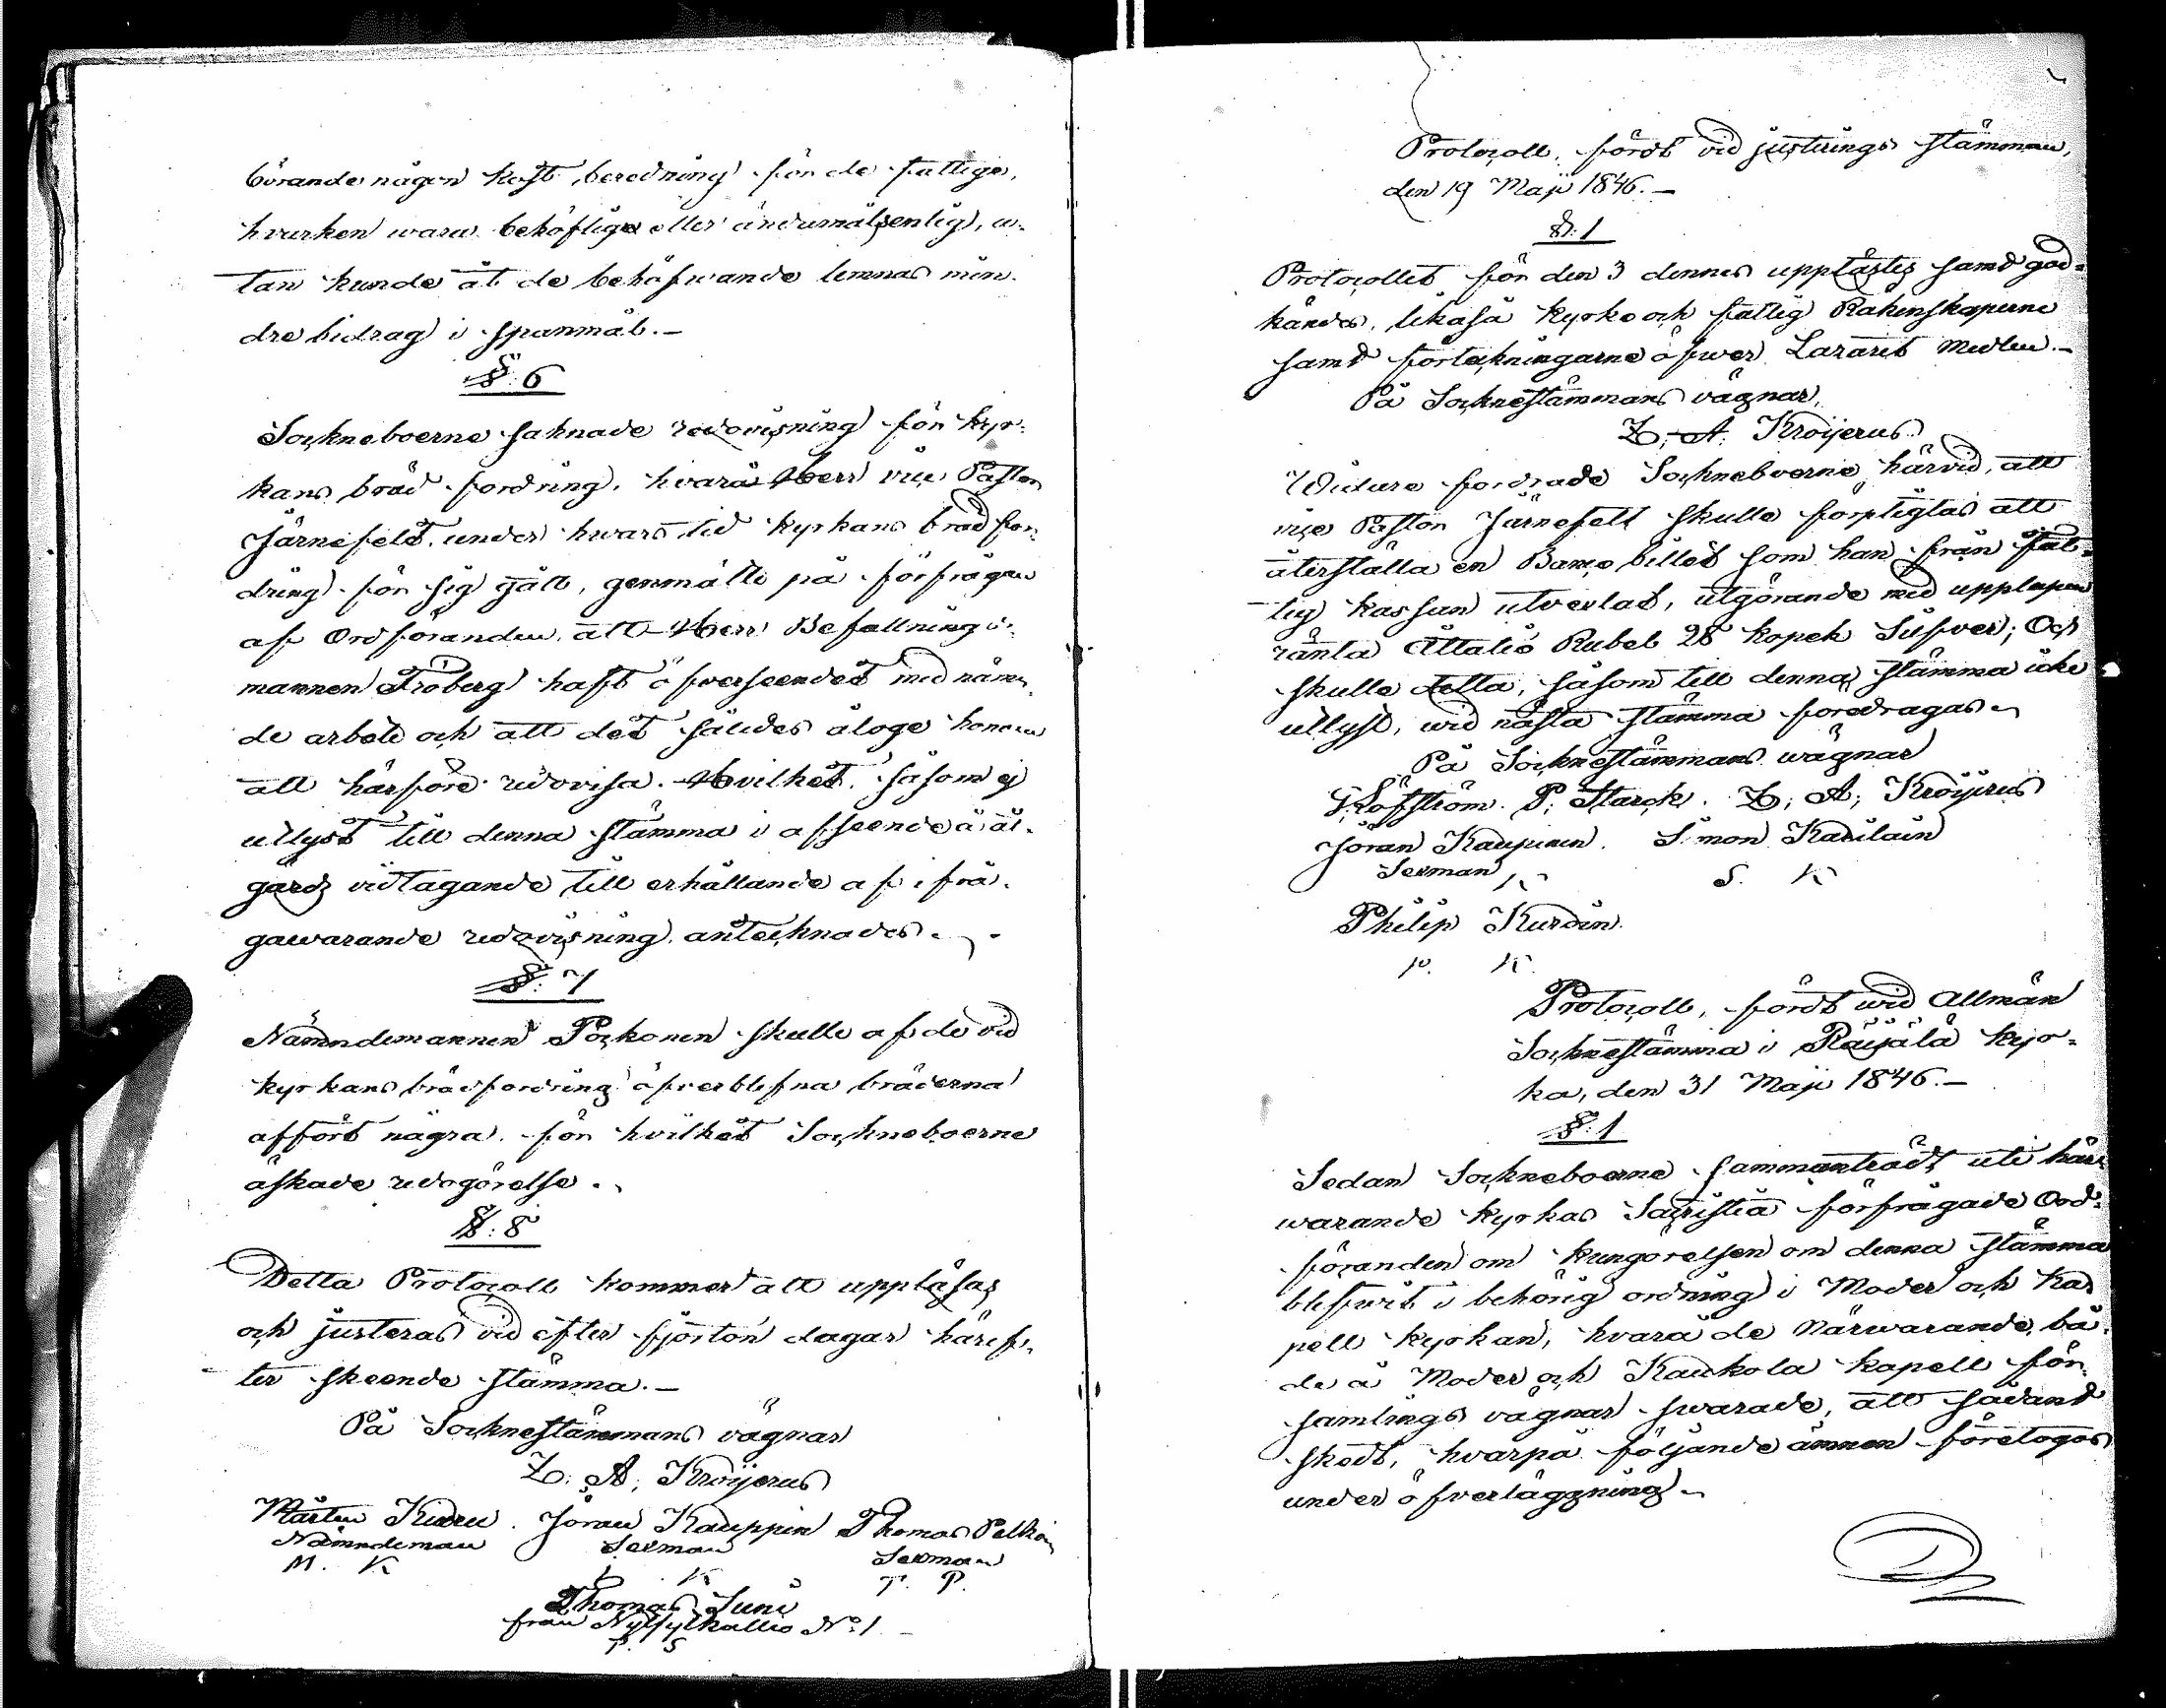 börande någon kost beredning för de fattige,
hvarken wara behöflige eller ändamålsenlig, u-
tan kunde åt de behöfwande lemnas min-
dre bidrag i spanmål.—
§: 6
Sockneboerne saknade redovisning för kyr-
kans bräd fordring, hvarå Herr vice Pastor
Järnefelt, under hwars tid kyrkans bräd for-
dring för sig gått, genmälte på förfrågan
af Ordföranden, att Herr Befallnings-
mannen Fröberg haft öfverseendet med näm-
de arbete och att det således åloge honom
att härföre redovisa. Hvilket, såsom ej
utlyst till denna stämma i afseende å åt-
gärds vidtagande till erhållande af ifrå-
gawarande redovisning, antecknades.
§: 7
Nämndemannen Pockonen skulle af de vid
kyrkans brädfordring öfverblefna bräderna
affört några, för hvilket Sockneboerne
äskade redogörelse.
§: 8
Detta Protocoll kommer att uppläsas
och justeras vid efter fjorton dagar häref-
ter skeende stämma.—
På Socknestämmans vägnar
Z: A: Kröijerus
Mårten Kuoru. Jöran Kauppin Thomas Pelkon
Nämndeman Sexman Sexman
M. K J. K T. P.
Thomas Suni
från Nyhytkallio No: 1
T. S
Protocoll, fördt vid justerings stämman,
den 19 Maji 1846.—
§: 1
Protocollet för den 3 dennes upplästes samt god-
kändes, likaså kyrko och fattig Räkenskaperne
samt förteckningarne öfwer Lazarets medlen.—
På Socknestämmans vägnar,
Z: A: Kröijerus
Widare fordrade Sockneboerne härvid, att
vice Pastor Järnefelt skulle förpligtas att
återställa en Banco billet som han från fat-
tig kassan utvexlat, utgörande med upplupen
ränta Åttatio Rubel 28 kopek Silfver; Och
skulle detta, såsom till denna stämma icke
utlyst, wid nästa stämma föredragas.
På Socknestämmans wägnar
Löfström. P: Starck. Z: A: Kröijerus
Jöran Kaupinen. Simon Karilain
Sexman K S. K
Philip Kurdin.
P. K.
Protocoll, fördt wid Allmän
Socknestämma i Räisälä kyr-
ka, den 31 Maji 1846.—
§: 1
Sedan Sockneboerne sammanträdt uti här-
warande kyrkas Sacristia förfrågade Ord-
föranden om kungörelsen om denna stämma
blifwit i behörig ordning i Moder och Ka-
pell kyrkan, hvarå de närwarande, bå-
de å Moder och Kaukola kapell för-
samlings vägnar swarade, att sådant
skedt, hvarpå följande ämnen företogos
under öfverläggning.